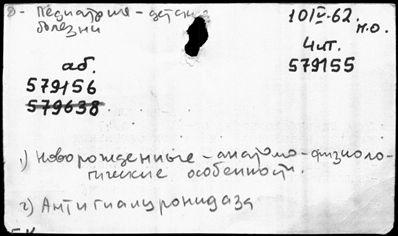 8 - Педиатрия - детские
болезни
101 IV-62.
н.о.
аб.
Чит.
579156
579155
579638
1) Новорожденные - анатомо-физиоло-
гические особенности.
2) Антигиалуронидаза